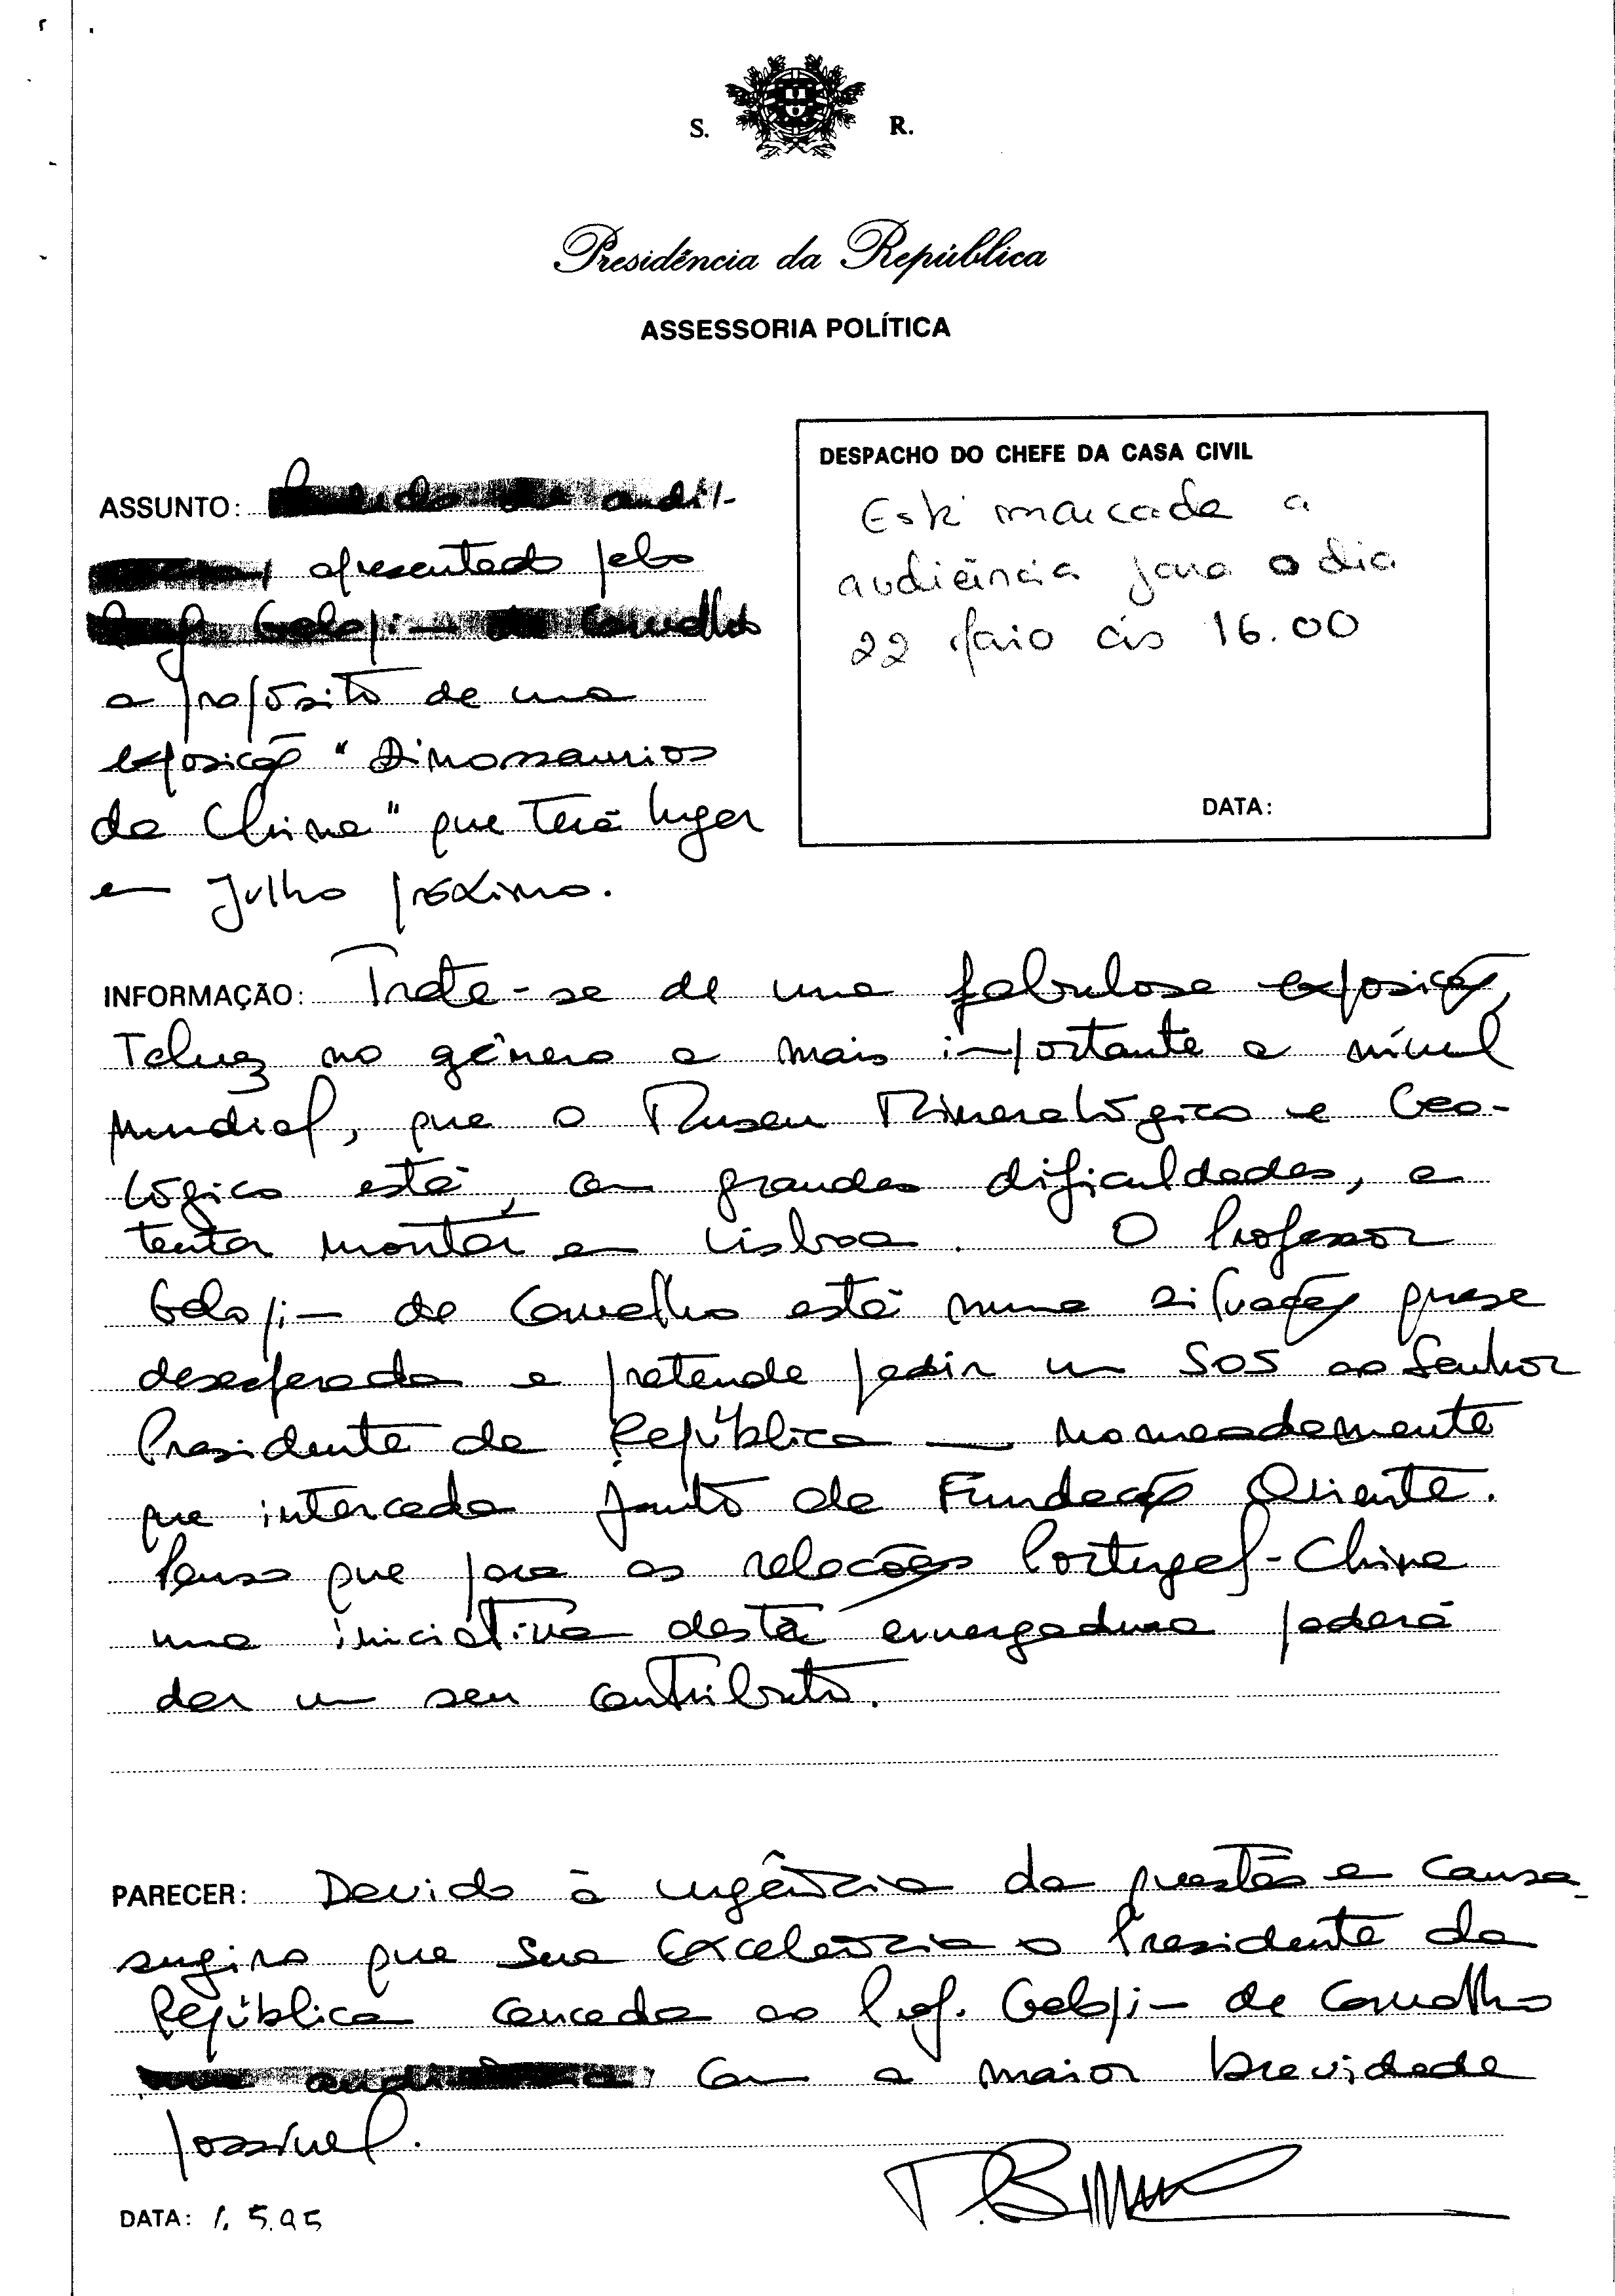 S. R.
Presidência da República
ASSESSORIA POLÍTICA
DESPACHO DO CHEFE DA CASA CIVIL
Está marcada a
audiência para o dia
22 Maio às 16.00
DATA:
ASSUNTO: Pedido de audiên-
apresentado pelo
Prof. Galopim de Carvalho
a propósito de uma
exposição "Dinossaurios
da China" que terá lugar
em Julho próximo.
INFORMAÇÃO: Trata-se de uma fabulosa exposição,
Talvez no género a mais importante a nível
mundial, que o Museu Mineralógico e Geo-
lógico está, com grandes dificuldades, a
tentar montar em Lisboa. O Professor
Galopim de Carvalho está numa situação quase
desesperada e pretende pedir um SOS ao Senhor
Presidente da República — nomeadamente
que interceda junto da Fundação Oriente.
Penso que para as relações Portugal-China
uma iniciativa desta envergadura poderá
dar um seu contributo.
PARECER: Devido à urgência da questão em causa
sugiro que Sua Excelência o Presidente da
República conceda ao Prof. Galopim de Carvalho
uma audiência com a maior brevidade
possível.
DATA: 1.5.95